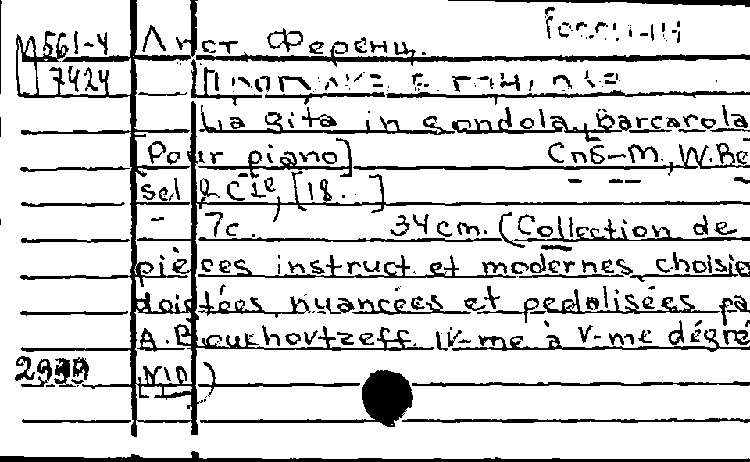 Россини
М561-4 Лист Ференц.
7424 Прогулка в гондоле
La gita in gondola, barcarola
[Pour piano] Спб-М., W. Be
sel & Cie, [18...]
7с. 34 cm. (Collection de
pièces instruct. et modernes, choisie
doigtées, nuancées et pedalisées pa
A. Boukhovtzeff. IV-me à V-me dégré
2999 N10)